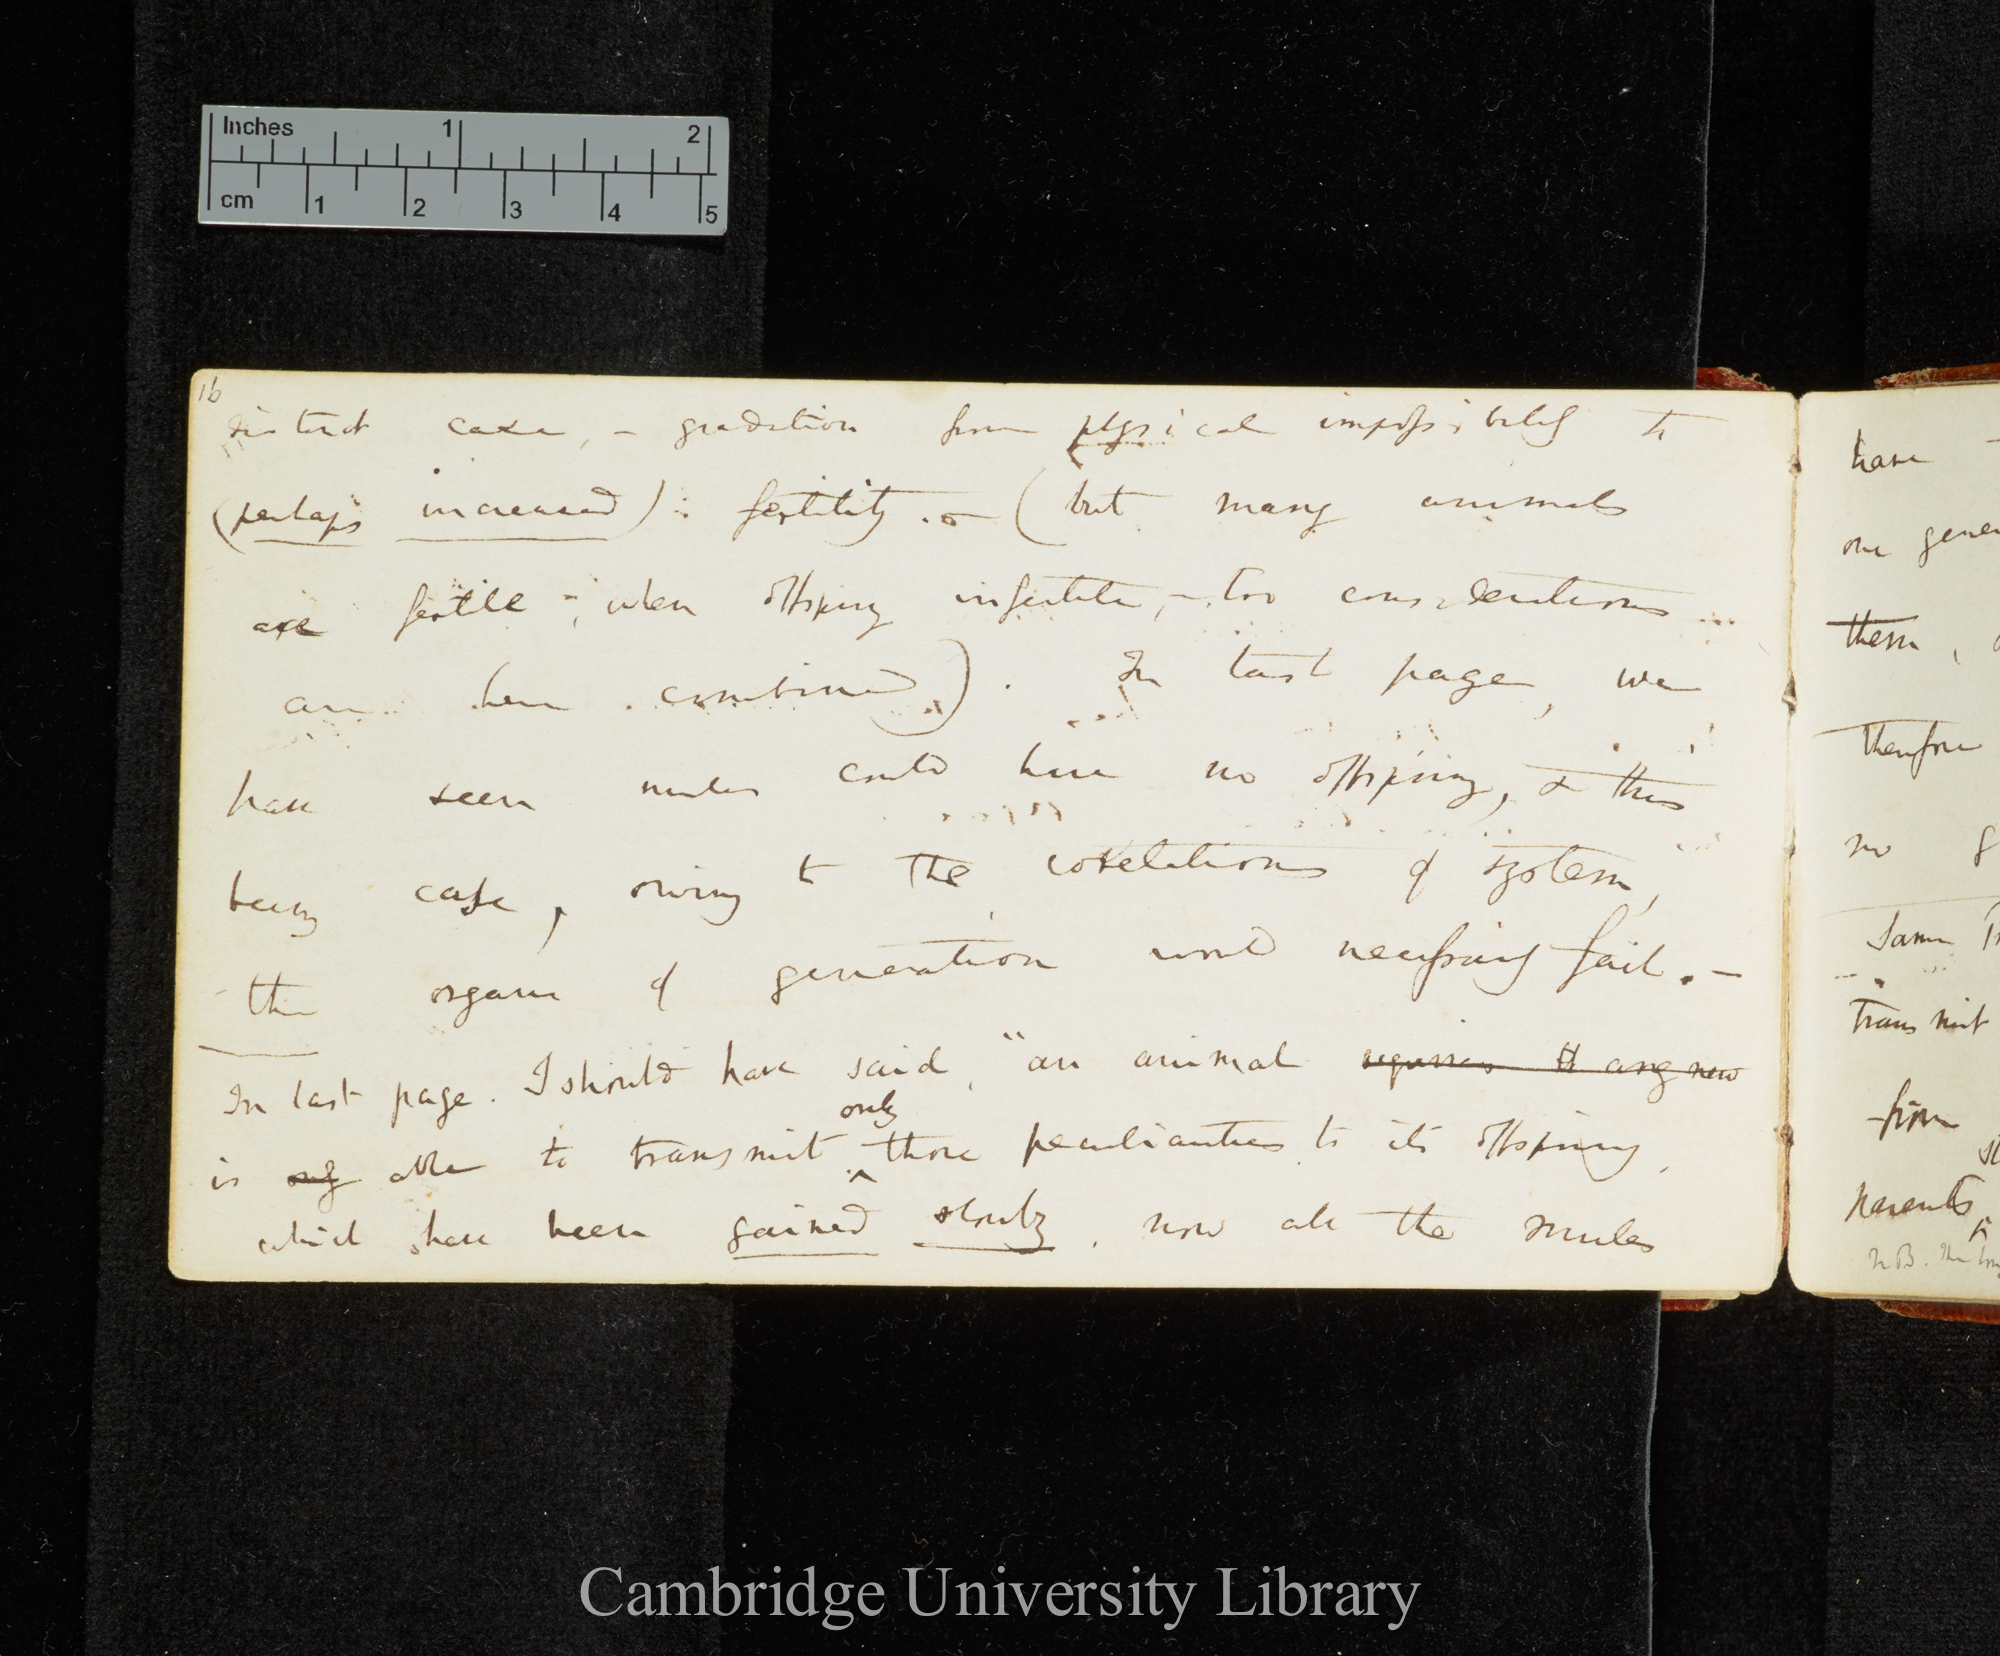 Inches 1 2
cm 1 2 3 4 5
16
distinct case, – gradation from physical impossibility to
(perhaps increased): fertility. – (but many animals
are fertile –; when offspring infertile, – two considerations
are here combined). In last page, we
have seen mules could have no offspring, & this
being case, owing to the correlations of system,
the organs of generation would necessarily fail. –
In last page. I should have said, "an animal any new
only
is only able to transmit ^ those peculiarities to its offspring,
which have been gained slowly, now all the mules
have
one gener
them,
therefore
no g
Same
transmit
from
parents ^
N.B. The
Cambridge University Library